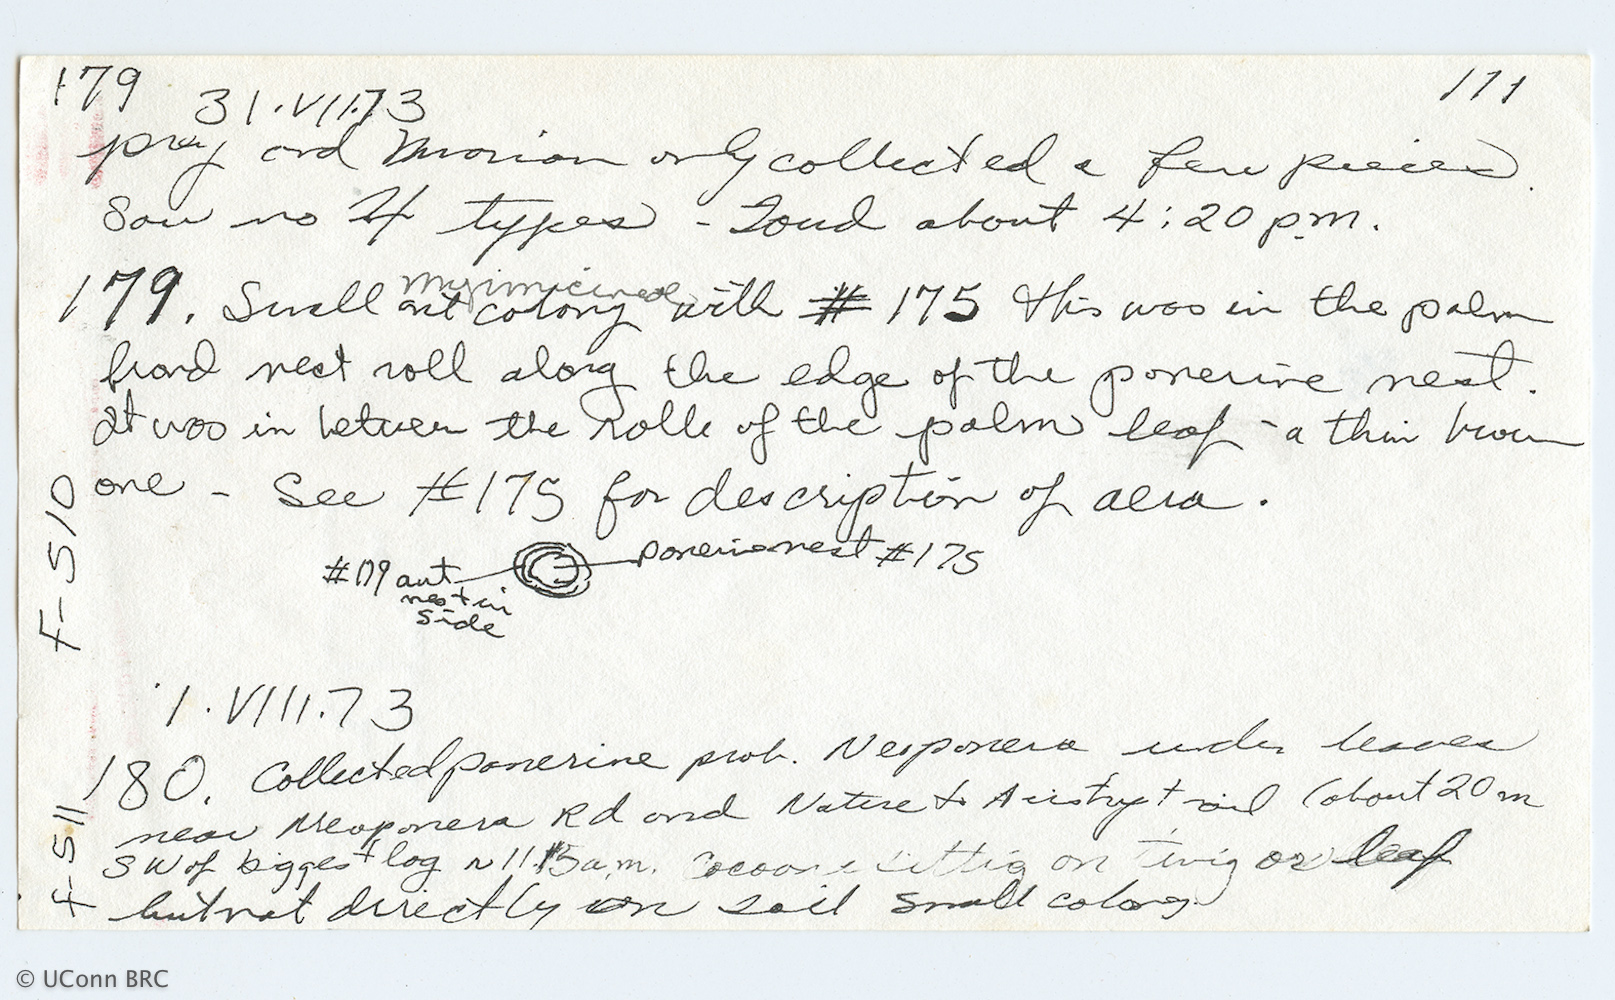 179 31.VII.73 171
prey and Marian only collected a few pieces.
Saw no types - Found about 4:20 p.m.
179. Small ant colony with # 175 this was in the palm
myrmicined
frond nest roll along the edge of the ponerine nest.
It was in between the rolls of the palm leaf - a thin brown
one - See #175 for description of aera.
F-510
ponerine nest #175
#179 ant
nest in
side
1.VIII.73
180. Collected ponerine prob. Neoponera under leaves
near Neoponera Rd and Nature to trail (about 20 m
SW of biggest log ~ 11:15 a.m. Cocoons sitting on twig or leaf
but not directly on soil small colony
F-511
© UConn BRC